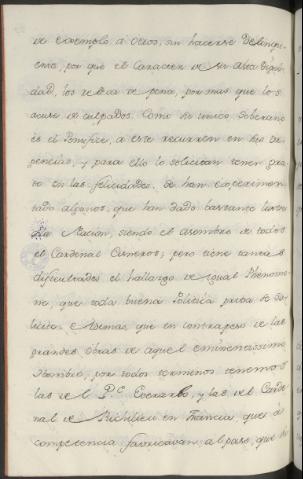 de exemplo à otros, sin hacerse Delinqu-
ente, por que el Caracter de su alta Digni-
dad, los releva de pena, por mas que los
acuse de culpados. Como su unico Soberano
es el Pontifice, à este recurren en sus Ur-
gencias, y para ello lo solicitan tener gra-
to en las felicidades. Se han experimen-
tado algunos, que han dado bastante lustre
à la Nacion, siendo el asombro de todos
el Cardenal Cisneros; pero tiene tantas
dificultades el hallazgo de igual Phenome-
no, que toda buena Politica priva de
Ademas que en contrapeso de las
grandes obras de aquel eminentissimo
Hombre, por todos terminos tenemos
las de el P.e Everardo, y las de el Carde-
nal de Richilieu en Francia, que à
competencia fabricavan al paso, que